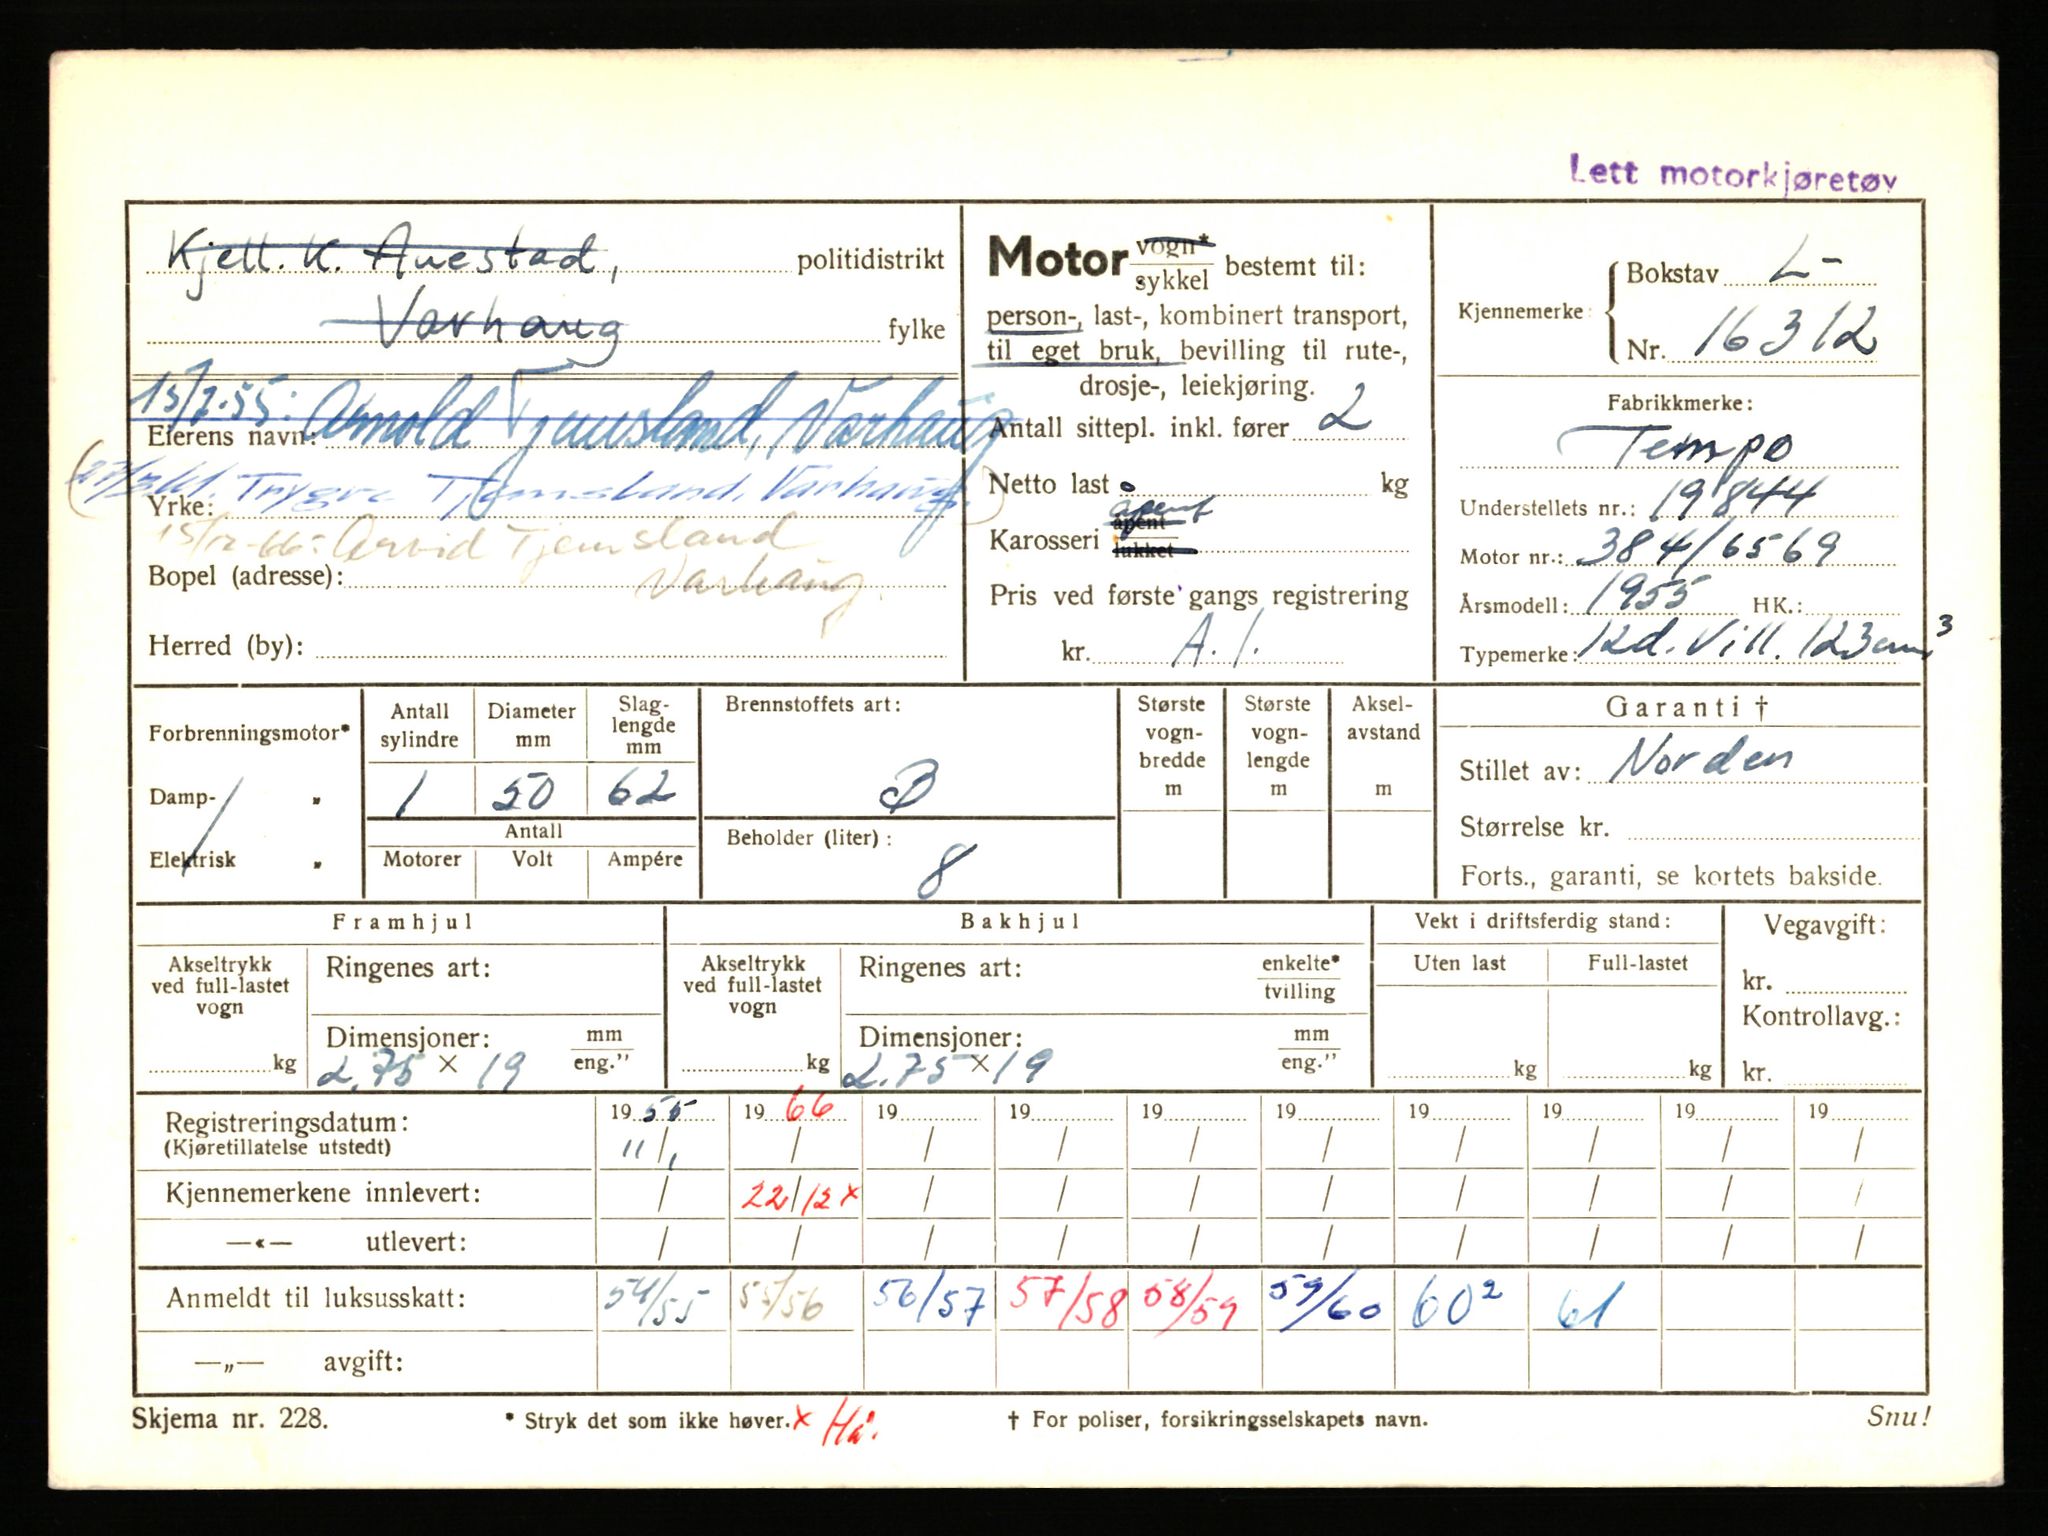 Lett motorkjøretøy
Kjell. K. Auestad, politidistrikt
Varhaug fylke
15/7-55: Arnold Tjemsland, Varhaug
Eierens navn:
Trygve Tjemsland, Varhaug
Yrke:
15/12-66: Arvid Tjemsland
Varhaug.
Bopel (adresse):
Herred (by):
Motor vogn* / sykkel bestemt til:
person-, last-, kombinert transport,
til eget bruk, bevilling til rute-,
drosje-, leiekjøring.
Antall sittepl. inkl. fører 2
Netto last kg
Karosseri åpent
åpent
lukket
Pris ved første gangs registrering
kr. A. 1.
Kjennemerke: Bokstav L-
Nr. 16312
Fabrikkmerke:
Tempo
Understellets nr.: 19844
Motor nr.: 384/6569
Årsmodell: 1955 HK.:
Typemerke: Kd. Vill. 123 cm³
Forbrenningsmotor*
Damp- „
Elektrisk „
Antall sylindre Diameter mm Slag-lengde mm
1 50 62
Antall
Motorer Volt Ampére
Brennstoffets art:
B
Beholder (liter):
8
Største vogn-bredde m
Største vogn-lengde m
Aksel-avstand m
Garanti †
Stillet av: Norden
Størrelse kr.
Forts., garanti, se kortets bakside.
Framhjul
Akseltrykk ved full-lastet vogn
kg
Ringenes art:
Dimensjoner: mm / eng."
2.75 × 19
Bakhjul
Akseltrykk ved full-lastet vogn
kg
Ringenes art: enkelte* / tvilling
Dimensjoner: mm / eng."
2.75 × 19
Vekt i driftsferdig stand:
Uten last Full-lastet
kg kg
Vegavgift:
kr.
Kontrollavg.:
kr.
Registreringsdatum: 19 55 19 66 19 19 19 19 19 19 19 19
(Kjøretillatelse utstedt) 11/1 / / / / / / / / /
Kjennemerkene innlevert: / 22/12 x / / / / / / / /
—«— utlevert: / / / / / / / / / /
Anmeldt til luksusskatt: 54/55 55/56 56/57 57/58 58/59 59/60 60² 61
—„— avgift:
Skjema nr. 228. * Stryk det som ikke høver. x Hå. † For poliser, forsikringsselskapets navn. Snu!